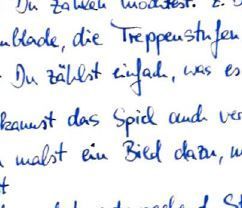 Du zählen möchtest. z. B
nblade, die Treppenstufen
Du zählst einfach, was es
kannst das Spiel auch ver
malst ein Bild dazu, w